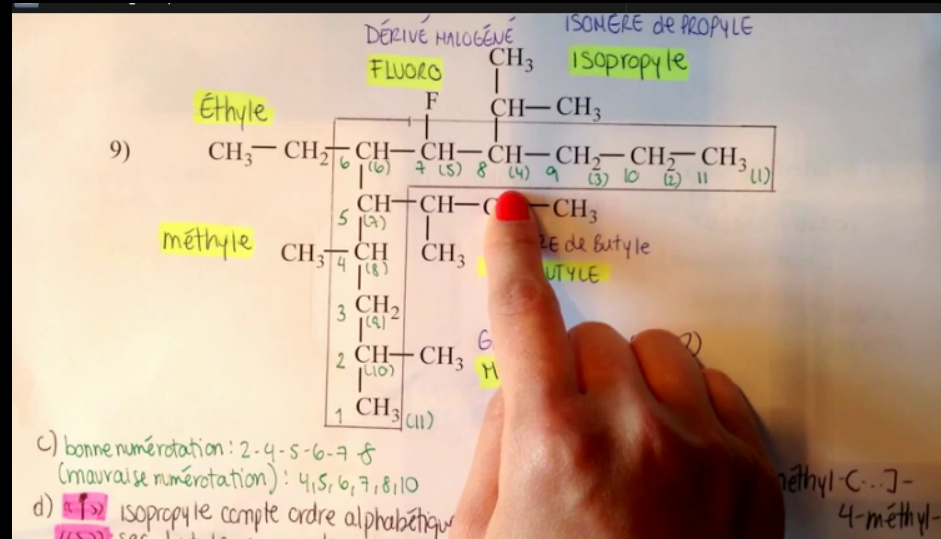 DÉRIVÉ HALOGÉNÉ ISOMÈRE de PROPYLE
FLUORO CH3 Isopropyle
Éthyle F CH—CH3
9) CH3—CH2—CH—CH—CH—CH2—CH2—CH3
6 (6) 7 (5) 8 (4) 9 (3) 10 (2) 11 (1)
CH—CH—C —CH3
5 (7)
méthyle CH3—CH CH3 de Butyle
4 (8) UTYLE
3 CH2
(9)
2 CH—CH3
(10)
1 CH3 (11)
c) bonne numérotation : 2-4-5-6-7-8
(mauvaise numérotation) : 4,5,6,7,8,10
d) isopropyle compte ordre alphabétiqu
méthyl-(...]-
4-méthyl-